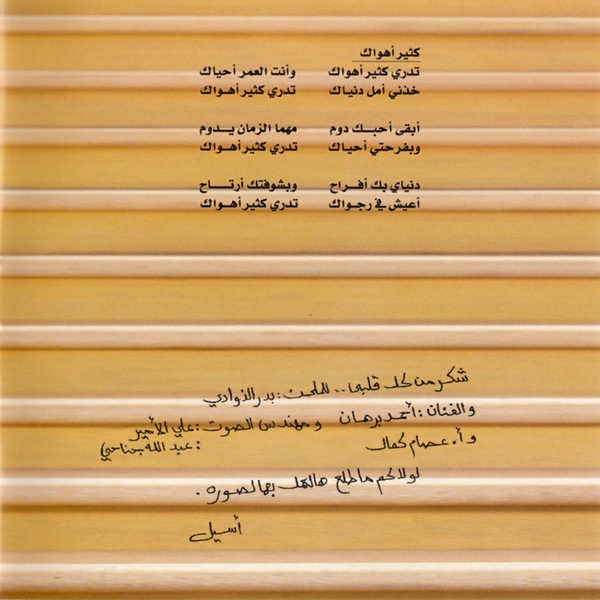 كثير أهواك
تدري كثير أهواك وأنت العمر أحياك
خذني أمل دنياك تدري كثير أهـواك
أبقى أحبـك دوم مهما الزمان يـدوم
وبفرحتي أحياك تدري كثير أهـواك
دنياي بك أفـراح وبشوفتك أرتـــاح
أعيش في رجـواك تدري كثير أهـواك
شكر من كل قلبي .. للملحن : بدر الذوادي
والفنان : أحمد برهان ومهندس الصوت : علي الأمير
و أ. عصام كمال : عبد الله جناحي
لولاكم ما طلع هالعمل بهالصوره .
أسيل